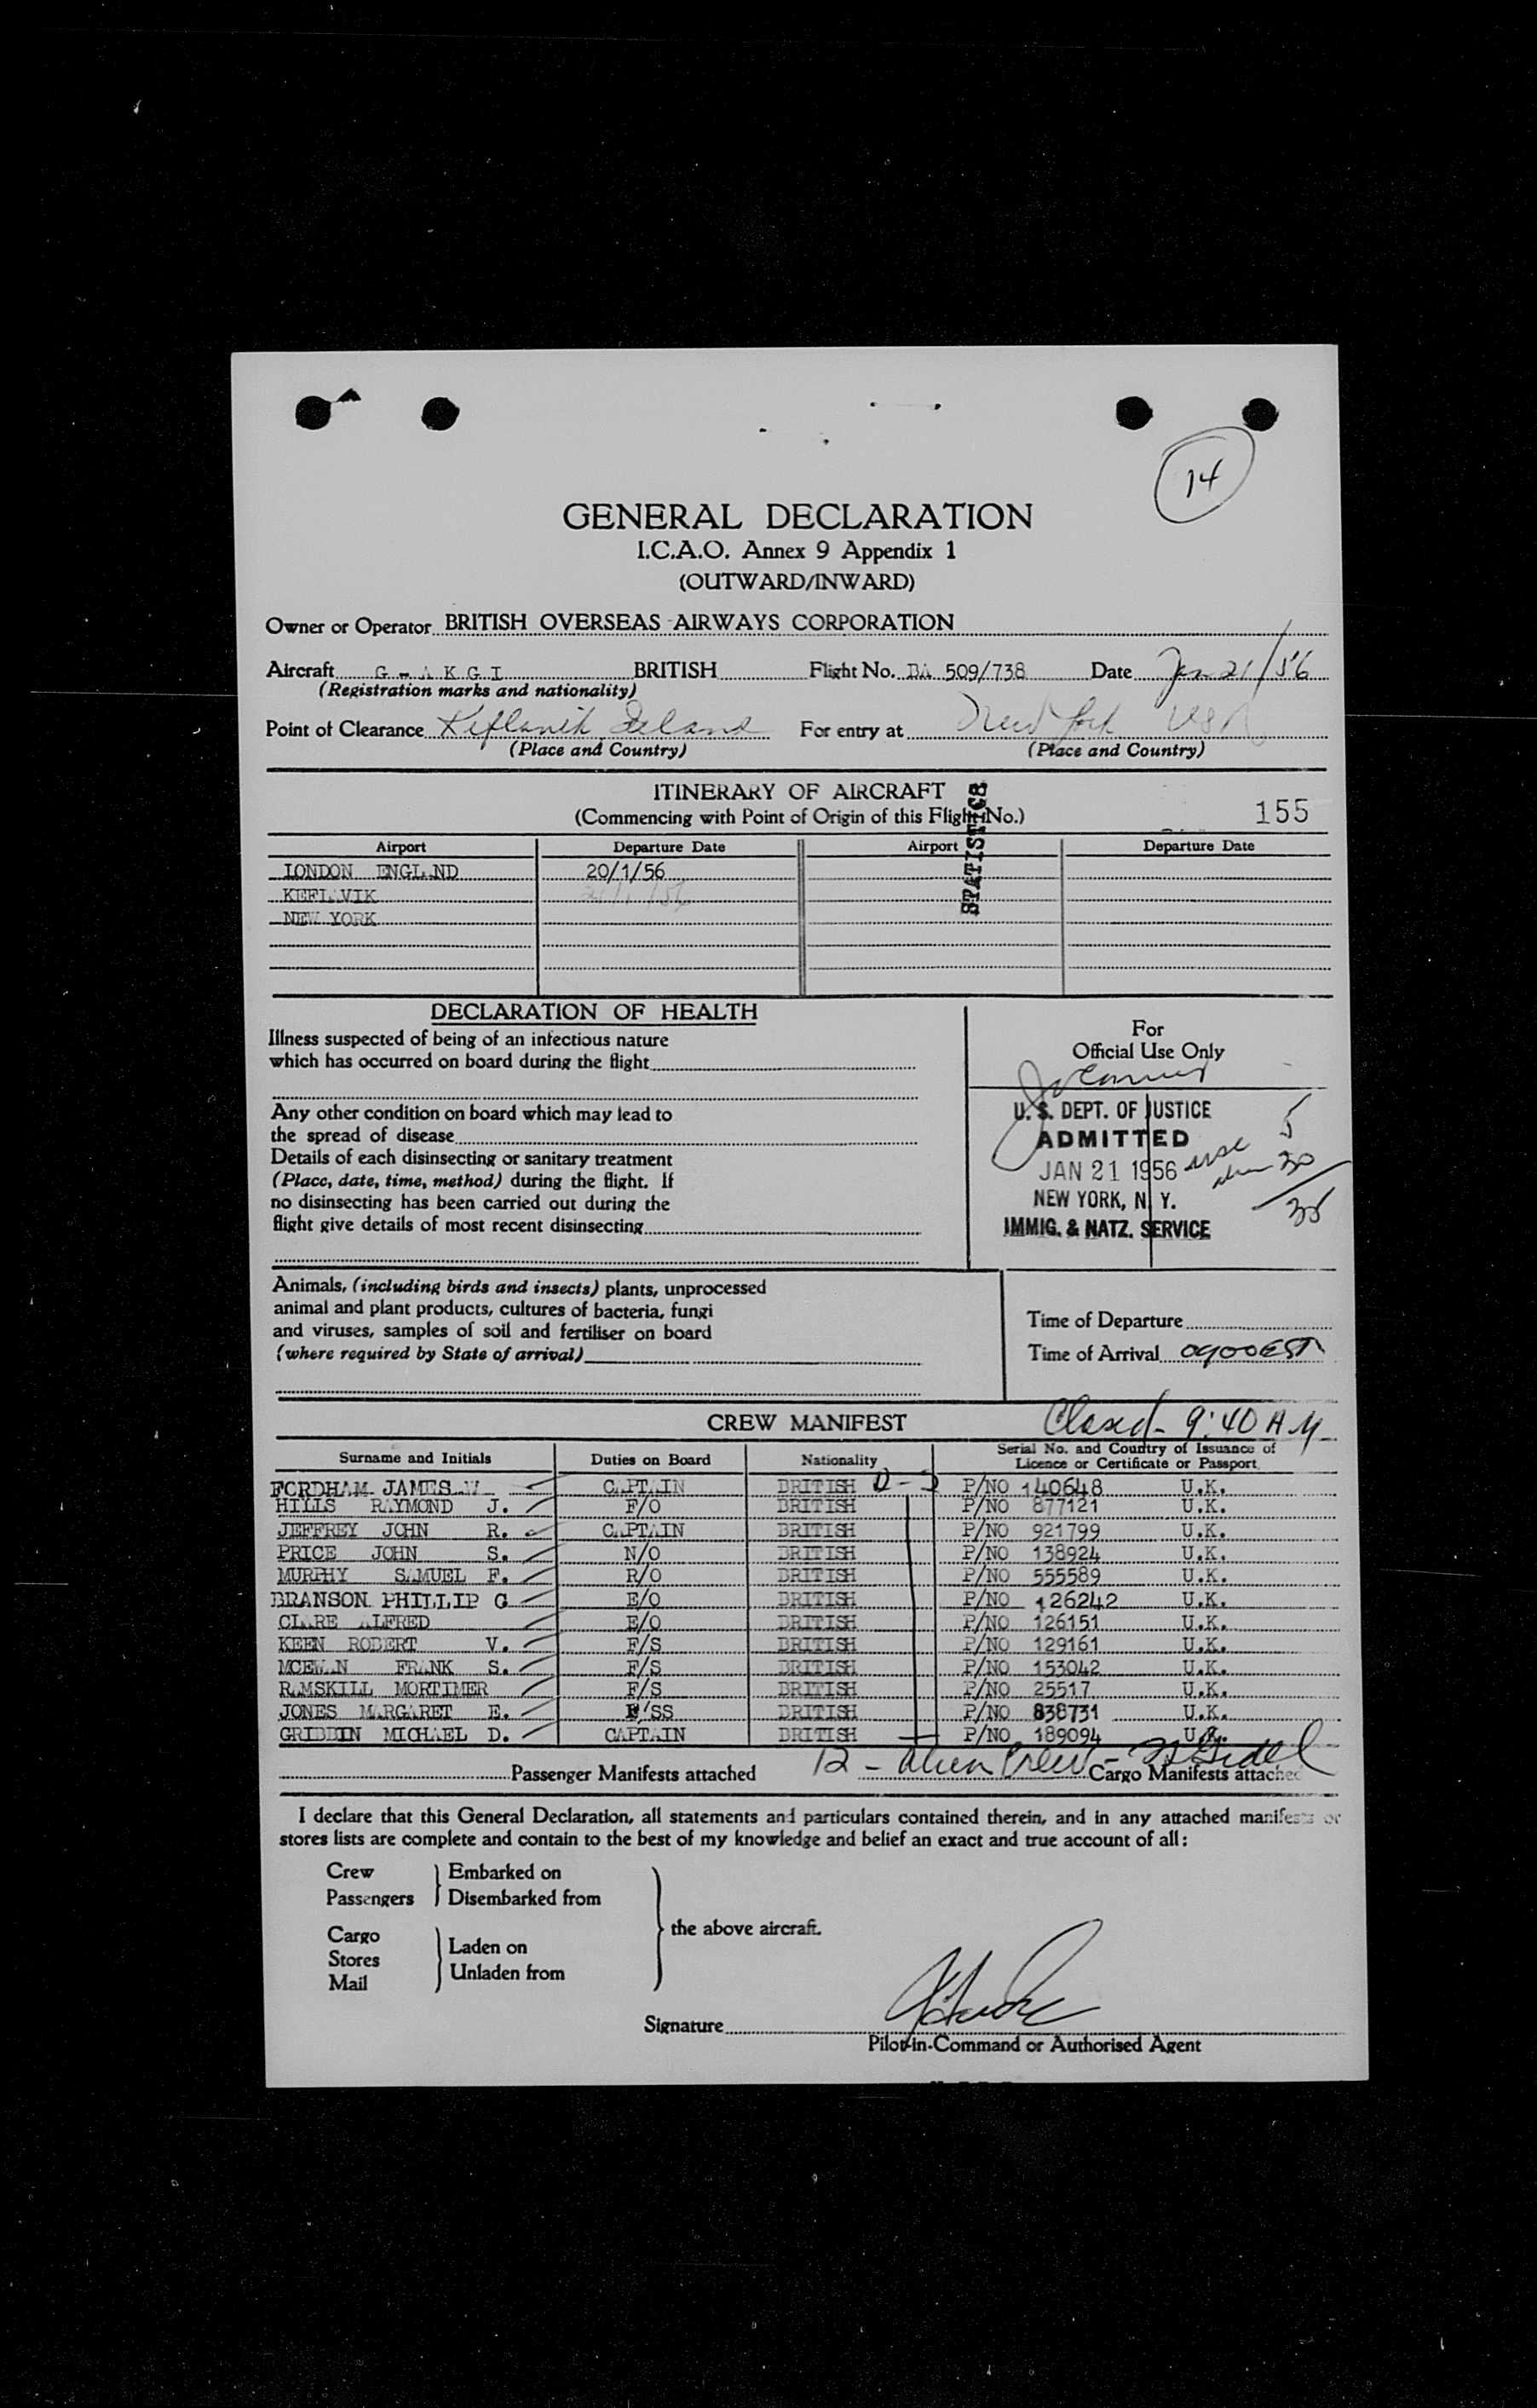 14
GENERAL DECLARATION
I.C.A.O. Annex 9 Appendix 1
(OUTWARD/INWARD)
Owner or Operator BRITISH OVERSEAS AIRWAYS CORPORATION
Aircraft G - A K G I BRITISH Flight No. BA 509/738 Date Jan 21/56
(Registration marks and nationality)
Point of Clearance Keflavik Iceland For entry at New York USA
(Place and Country) (Place and Country)
ITINERARY OF AIRCRAFT
(Commencing with Point of Origin of this Flight No.) 155
STATISTICS
Airport Departure Date Airport Departure Date
LONDON ENGLAND 20/1/56
KEFLAVIK 21/1/56
NEW YORK
DECLARATION OF HEALTH
Illness suspected of being of an infectious nature
which has occurred on board during the flight
Any other condition on board which may lead to
the spread of disease
Details of each disinsecting or sanitary treatment
(Place, date, time, method) during the flight. If
no disinsecting has been carried out during the
flight give details of most recent disinsecting
For
Official Use Only
U. S. DEPT. OF JUSTICE
ADMITTED
JAN 21 1956 usc 5
NEW YORK, N. Y. alien 30
IMMIG. & NATZ. SERVICE 35
Animals, (including birds and insects) plants, unprocessed
animal and plant products, cultures of bacteria, fungi
and viruses, samples of soil and fertiliser on board
(where required by State of arrival)
Time of Departure
Time of Arrival 0900 EST
CREW MANIFEST Closed - 9:40 A M
Surname and Initials Duties on Board Nationality Serial No. and Country of Issuance of Licence or Certificate or Passport
FORDHAM JAMES W CAPTAIN BRITISH D - P/NO 140648 U.K.
HILLS RAYMOND J. F/O BRITISH P/NO 877121 U.K.
JEFFREY JOHN R. CAPTAIN BRITISH P/NO 921799 U.K.
PRICE JOHN S. N/O BRITISH P/NO 138924 U.K.
MURPHY SAMUEL F. R/O BRITISH P/NO 555589 U.K.
BRANSON PHILLIP G E/O BRITISH P/NO 126242 U.K.
CLARE ALFRED E/O BRITISH P/NO 126151 U.K.
KEEN ROBERT V. F/S BRITISH P/NO 129161 U.K.
MCEWAN FRANK S. F/S BRITISH P/NO 153042 U.K.
RAMSKILL MORTIMER F/S BRITISH P/NO 25517 U.K.
JONES MARGARET E. F/SS BRITISH P/NO 838731 U.K.
GRIBBIN MICHAEL D. CAPTAIN BRITISH P/NO 189094 U.K.
Passenger Manifests attached 12 - Alien Crew - Cargo Manifests attached
I declare that this General Declaration, all statements and particulars contained therein, and in any attached manifests or
stores lists are complete and contain to the best of my knowledge and belief an exact and true account of all:
Crew Embarked on
Passengers Disembarked from
the above aircraft.
Cargo
Stores Laden on
Mail Unladen from
Signature
Pilot-in-Command or Authorised Agent